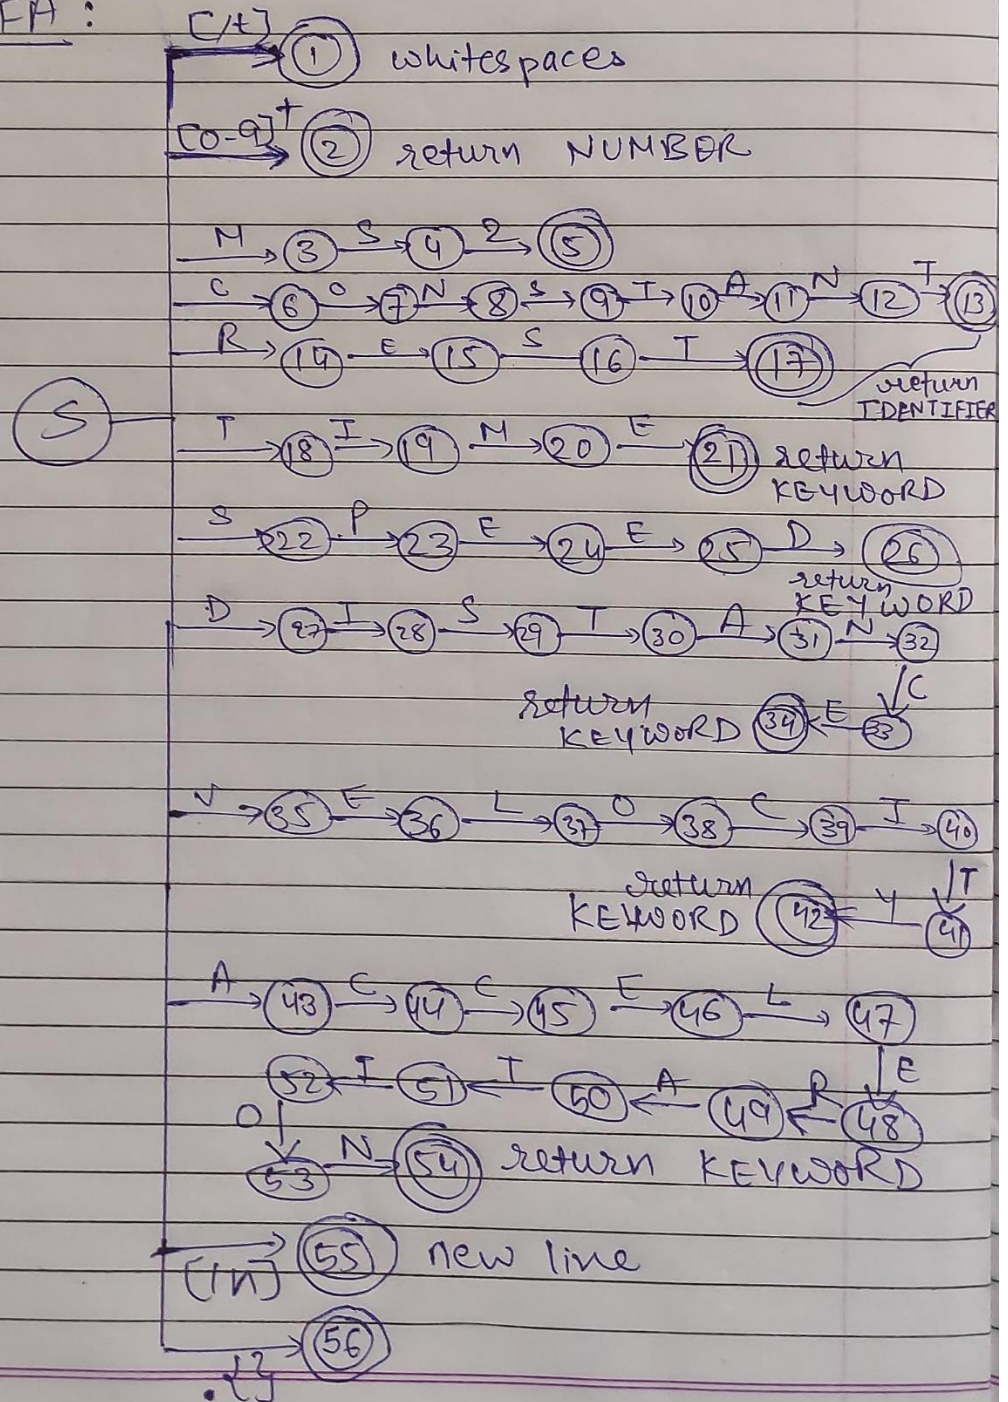 FA :
[/t] 1 whitespaces
[0-9]+ 2 return NUMBER
M 3 S 4 2 5
C 6 O 7 N 8 S 9 T 10 A 11 N 12 T 13
R 14 E 15 S 16 T 17
return
IDENTIFIER
S
T 18 I 19 M 20 E 21 return
KEYWORD
S 22 P 23 E 24 E 25 D 26
return
KEYWORD
D 27 I 28 S 29 T 30 A 31 N 32
C
return
KEYWORD 34 E 33
V 35 E 36 L 37 O 38 C 39 I 40
T
return
KEYWORD 42 Y 41
A 43 C 44 C 45 E 46 L 47
E
52 I 51 T 50 A 49 R 48
O
53 N 54 return KEYWORD
55 new line
[\n]
56
.{}